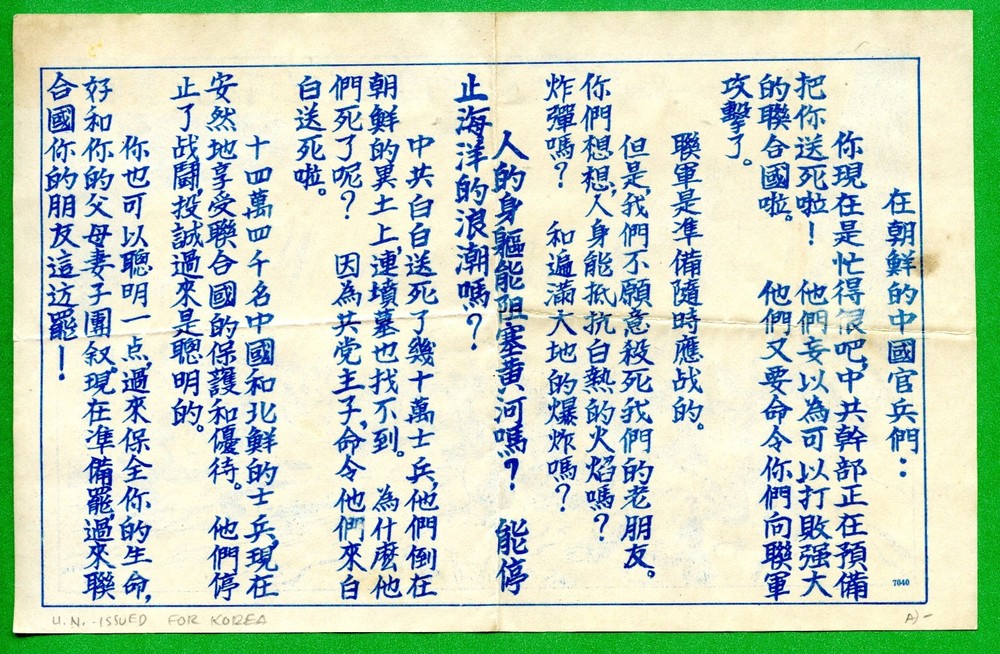 在朝鮮的中國官兵們：
你現在是忙得很吧，中共幹部正在預備
把你送死啦！　他們妄以為可以打敗强大
的聯合國啦。　他們又要命令你們向聯軍
攻擊了。
聯軍是准備隨時應战的。
但是，我們不願意殺死我們的老朋友。
你們想想，人身能抵抗白熱的火焰嗎？
炸彈嗎？　和遍滿大地的爆炸嗎？
人的身軀能阻塞黄河嗎？　能停
止海洋的浪潮嗎？
中共白白送死了幾十萬士兵，他們倒在
朝鮮的異土上，連墳墓也找不到。　為什麽他
們死了呢？　因為共党主子，命令他們來白
白送死啦。
十四萬四千名中國和北鮮的士兵，現在
安然地享受聯合國的保護和優待。　他們停
止了战鬪，投誠過來是聰明的。
你也可以聰明一点，過來保全你的生命，
好和你的父母妻子團叙。現在准備罷過來聯
合國你的朋友這边罷！
7040
U.N.-ISSUED FOR KOREA
A)-